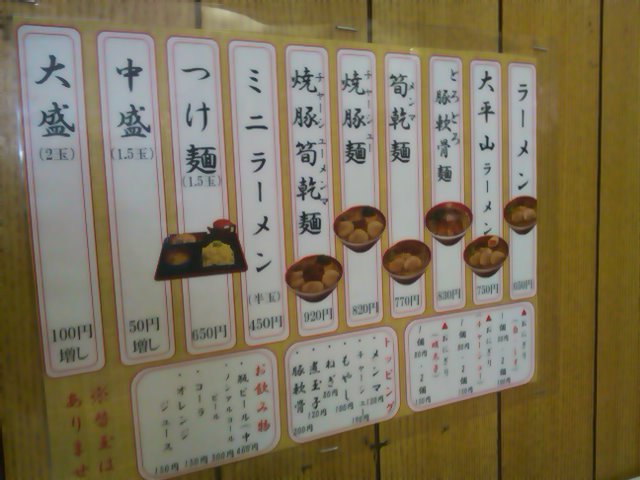 ラーメン
650円
大平山ラーメン
750円
とろとろ
豚軟骨麺
830円
メンマ
筍乾麺
770円
チャーシュー
焼豚麺
820円
チャーシューメンマ
焼豚筍乾麺
920円
ミニラーメン
(半玉)
450円
つけ麺
(1.5玉)
650円
中盛
(1.5玉)
50円
増し
大盛
(2玉)
100円
増し
▲おにぎり
▲おにぎり
▲おにぎり
トッピング
・メンマ
・チャーシュー
・もやし 100円
・ねぎ
・煮玉子 120円
・豚軟骨 200円
お飲み物
・瓶ビール(中)
・ノンアルコール
ビール
・コーラ
・オレンジ
ジュース 150円
※替玉は
ありませ